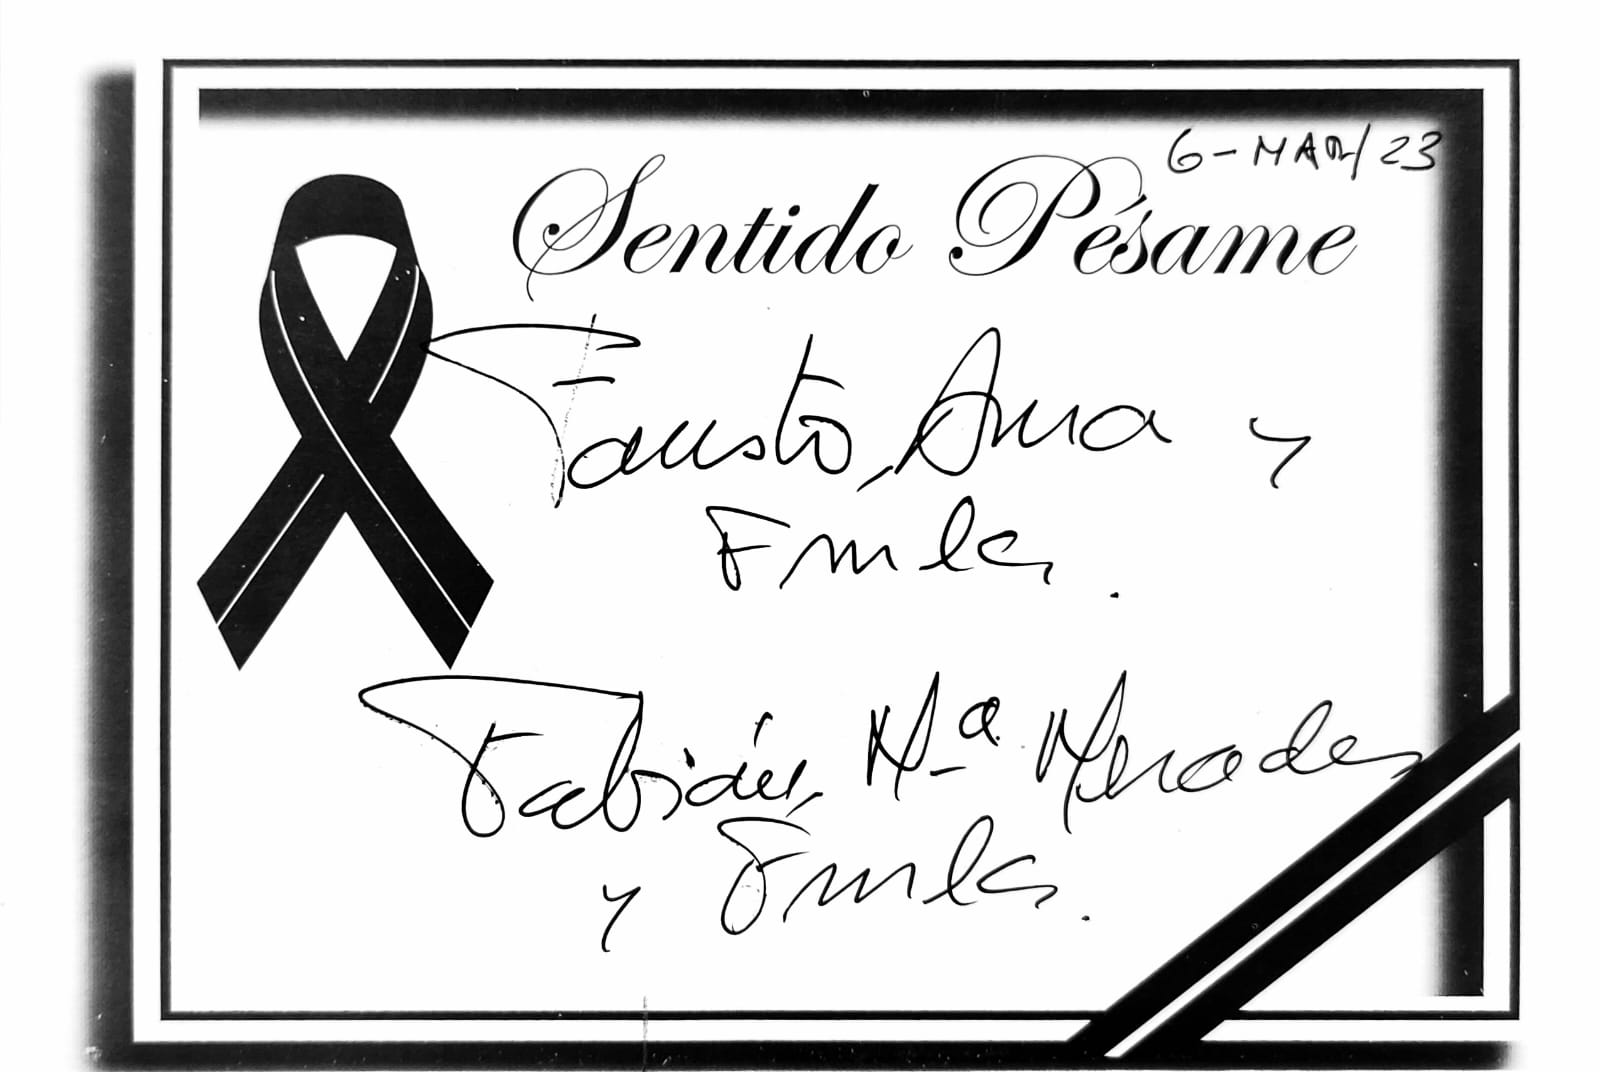 6-MAR/23
Sentido Pésame
Fausto, Ana y
Fmla.
Fabián, Mª Mercedes
y Fmla.